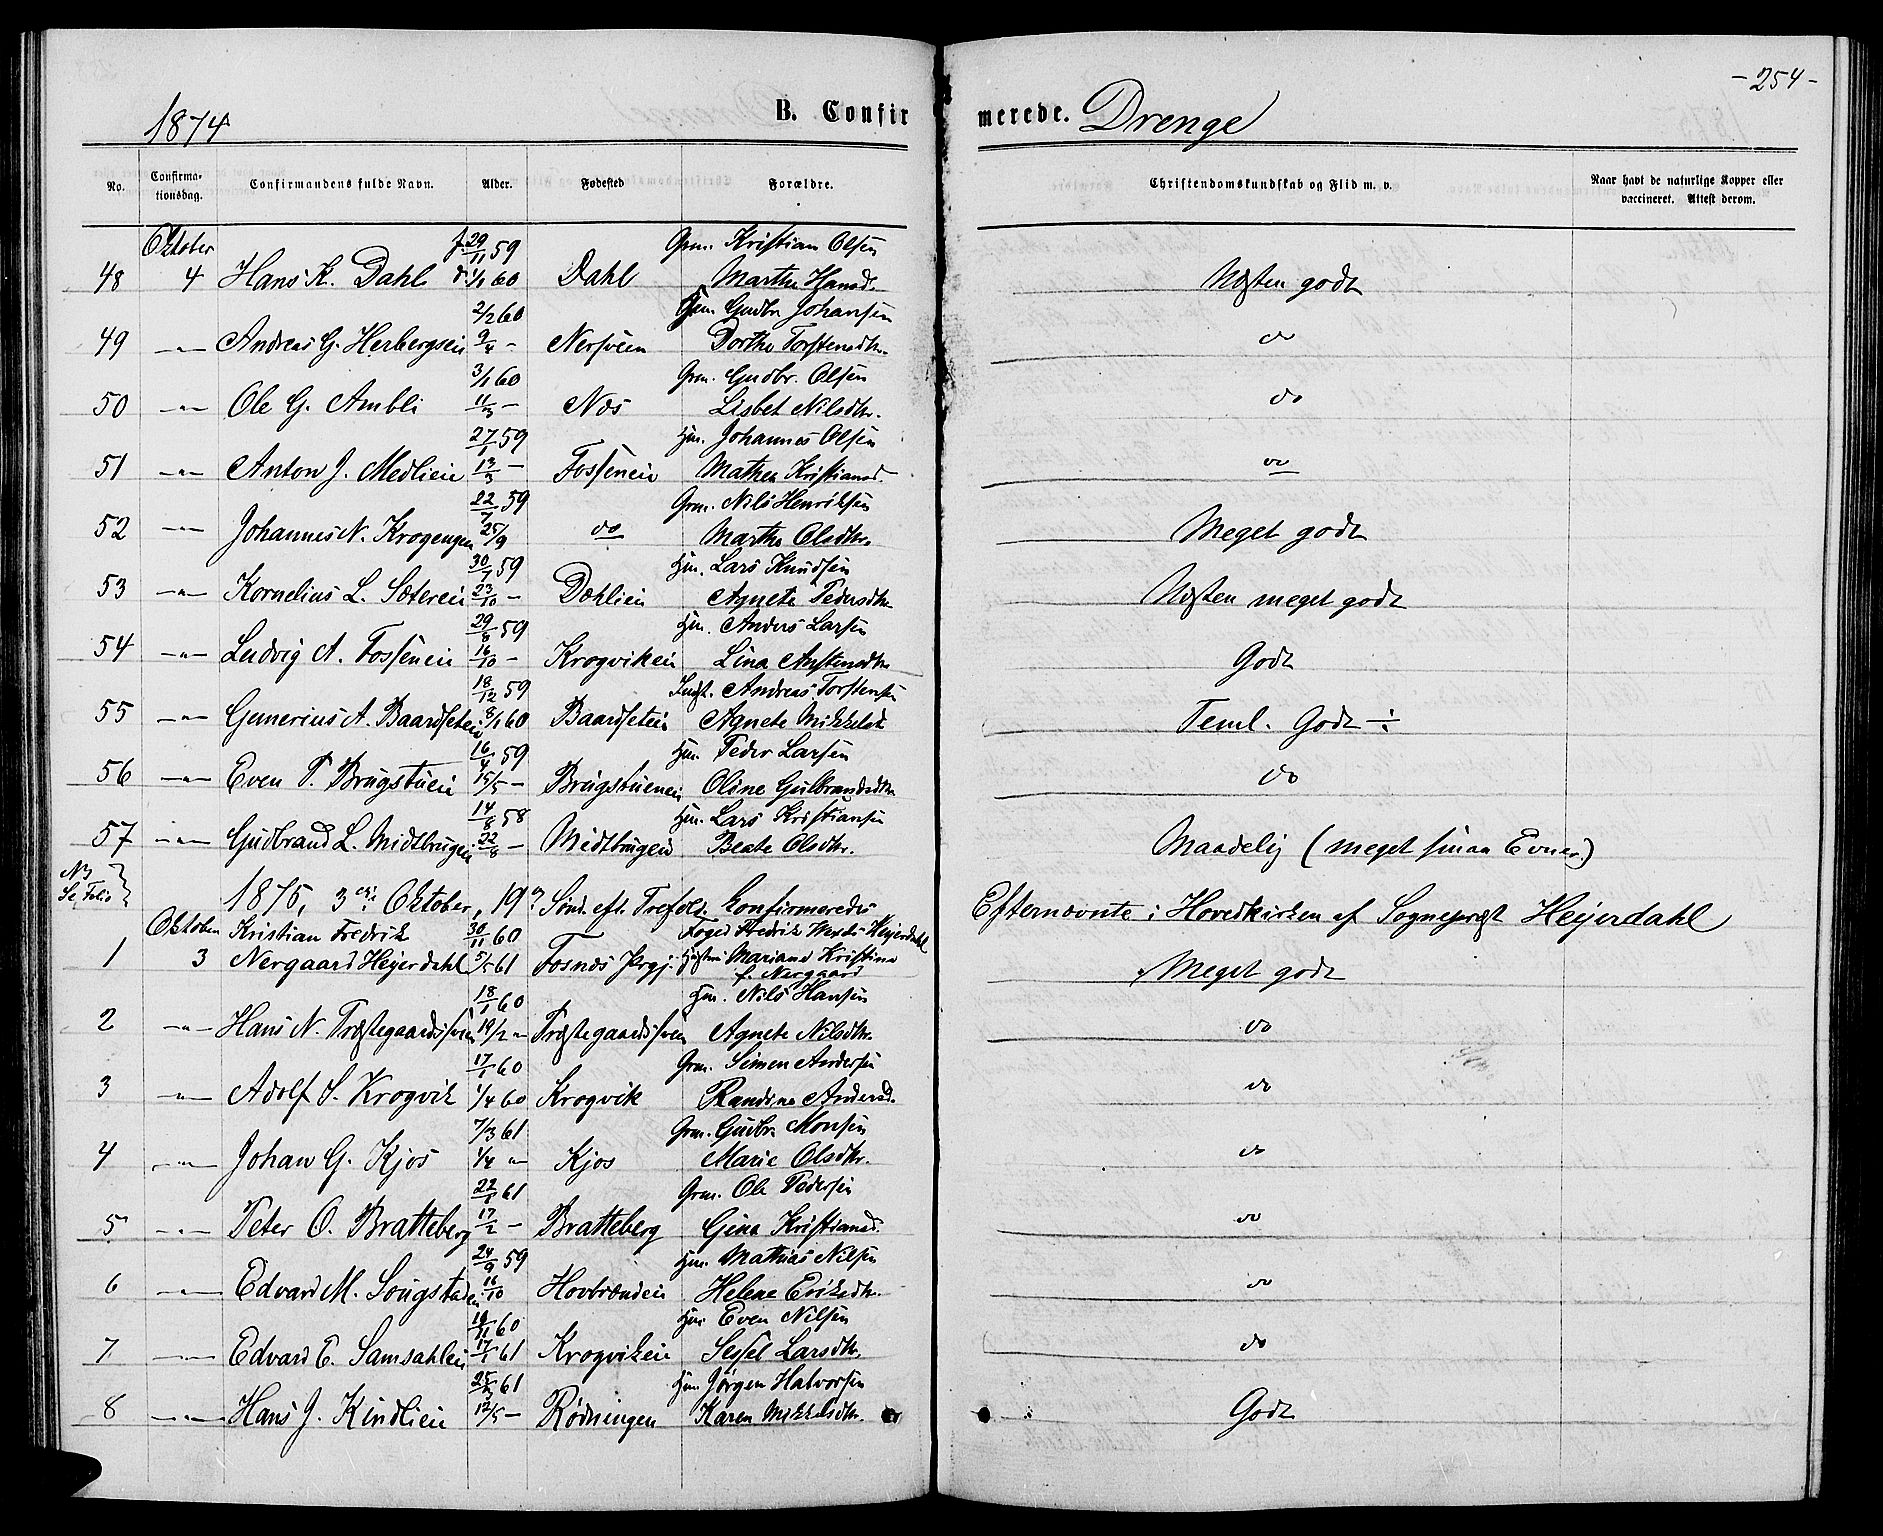 - 254 -
1874 B. Confirmerede. Drenge
No. Confirmationsdag. Confirmandens fulde Navn. Alder. Fødested Forældre. Christendomskundskab og Flid m. v. Naar havt de naturlige Kopper eller vaccineret. Attest derom.
Oktober f. 29/11 59 Grm. Kristian Olsen
48 4 Hans K. Dahl d. 1/1 60 Dahl Marthe Hansd. Næsten godt
2/2 60 Hm. Gudbr. Johansen
49 —"— Andreas G. Herbergseie 9/4 - Nersveen Dorthe Torstensdtr. do
3/1 60 Grm. Gudbr. Olsen
50 —"— Ole G. Ambli 11/3 - Næs Lisbet Nilsdtr. do
27/1 59 Hm. Johannes Olsen
51 —"— Anton J. Medlien 13/3 - Fosseneie Mathea Kristiansd. do
22/7 59 Grm. Nils Henriksen
52 —"— Johannes N. Krogengen 25/9 do Marthe Olsdtr. Meget godt
30/7 59 Hm. Lars Knudsen
53 —"— Kornelius L. Sætereie 23/10 - Dæhlien Agnete Pedersdtr. Næsten meget godt
29/8 59 Hm. Anders Larsen
54 —"— Ludvig A. Fosseneie 16/10 - Krogvikeie Lina Austensdtr Godt
18/12 59 Indst. Andreas Torstensen
55 —"— Gunerius A. Baardseteie 8/1 60 Baardseteie Agnete Mikkelsd. Teml. Godt ÷
16/4 59 Hm. Peder Larsen
56 —"— Even P. Brugstueie 15/5 - Brugstueneie Oline Gulbrandsdtr do
14/8 58 Hm. Lars Kristiansen
57 —"— Gudbrand L. Midtbrugen 22/8 - Midtbrugen Beate Olsdtr. Maadelig (meget smaa Evner.)
1875, 3die Oktober, 19de Sønd. eft. Trefold. Konfirmeredes Efternævnte i Hovedkirken af Sognepræst Heyerdahl
Oktober Kristian Fredrik 30/11 60 Foged Fredrik Heyerdahl
1 3 Nergaard Heyerdahl 5/5 61 Fosnæs Prgj. Hustru Mariane Kristine Meget godt
f. Nergaard
18/1 60 Hm. Nils Hansen
2 —"— Hans N. Præstegaardssveen 19/2 " Præstegaardssveen Agnete Nilsdtr. do
17/1 60 Grm. Simen Andersen
3 —"— Adolf S. Krogvik 1/4 60 Krogvik Randine Andersd. do
7/3 61 Grm. Gudbr. Monsen
4 —"— Johan G. Kjos 1/4 " Kjos Marie Olsdtr. do
22/1 61 Grm. Ole Pedersen
5 —"— Peter O. Bratteberg 17/2 - Bratteberg Gina Kristiansd. do
24/9 59 Hm. Mathias Nilsen
6 —"— Edvard M. Sougstadeie 16/10 Hovbrændeie Helene Eriksdtr. do
19/11 60 Hm. Even Nilsen
7 —"— Edvard E. Samsahleie 17/1 61 Krogvikeie Sessel Larsdtr. do
25/3 61 Hm. Jørgen Halvorsen
8 —"— Hans J. Kindlieie 12/5 - Rødningen Karen Mikkelsdtr. Godt